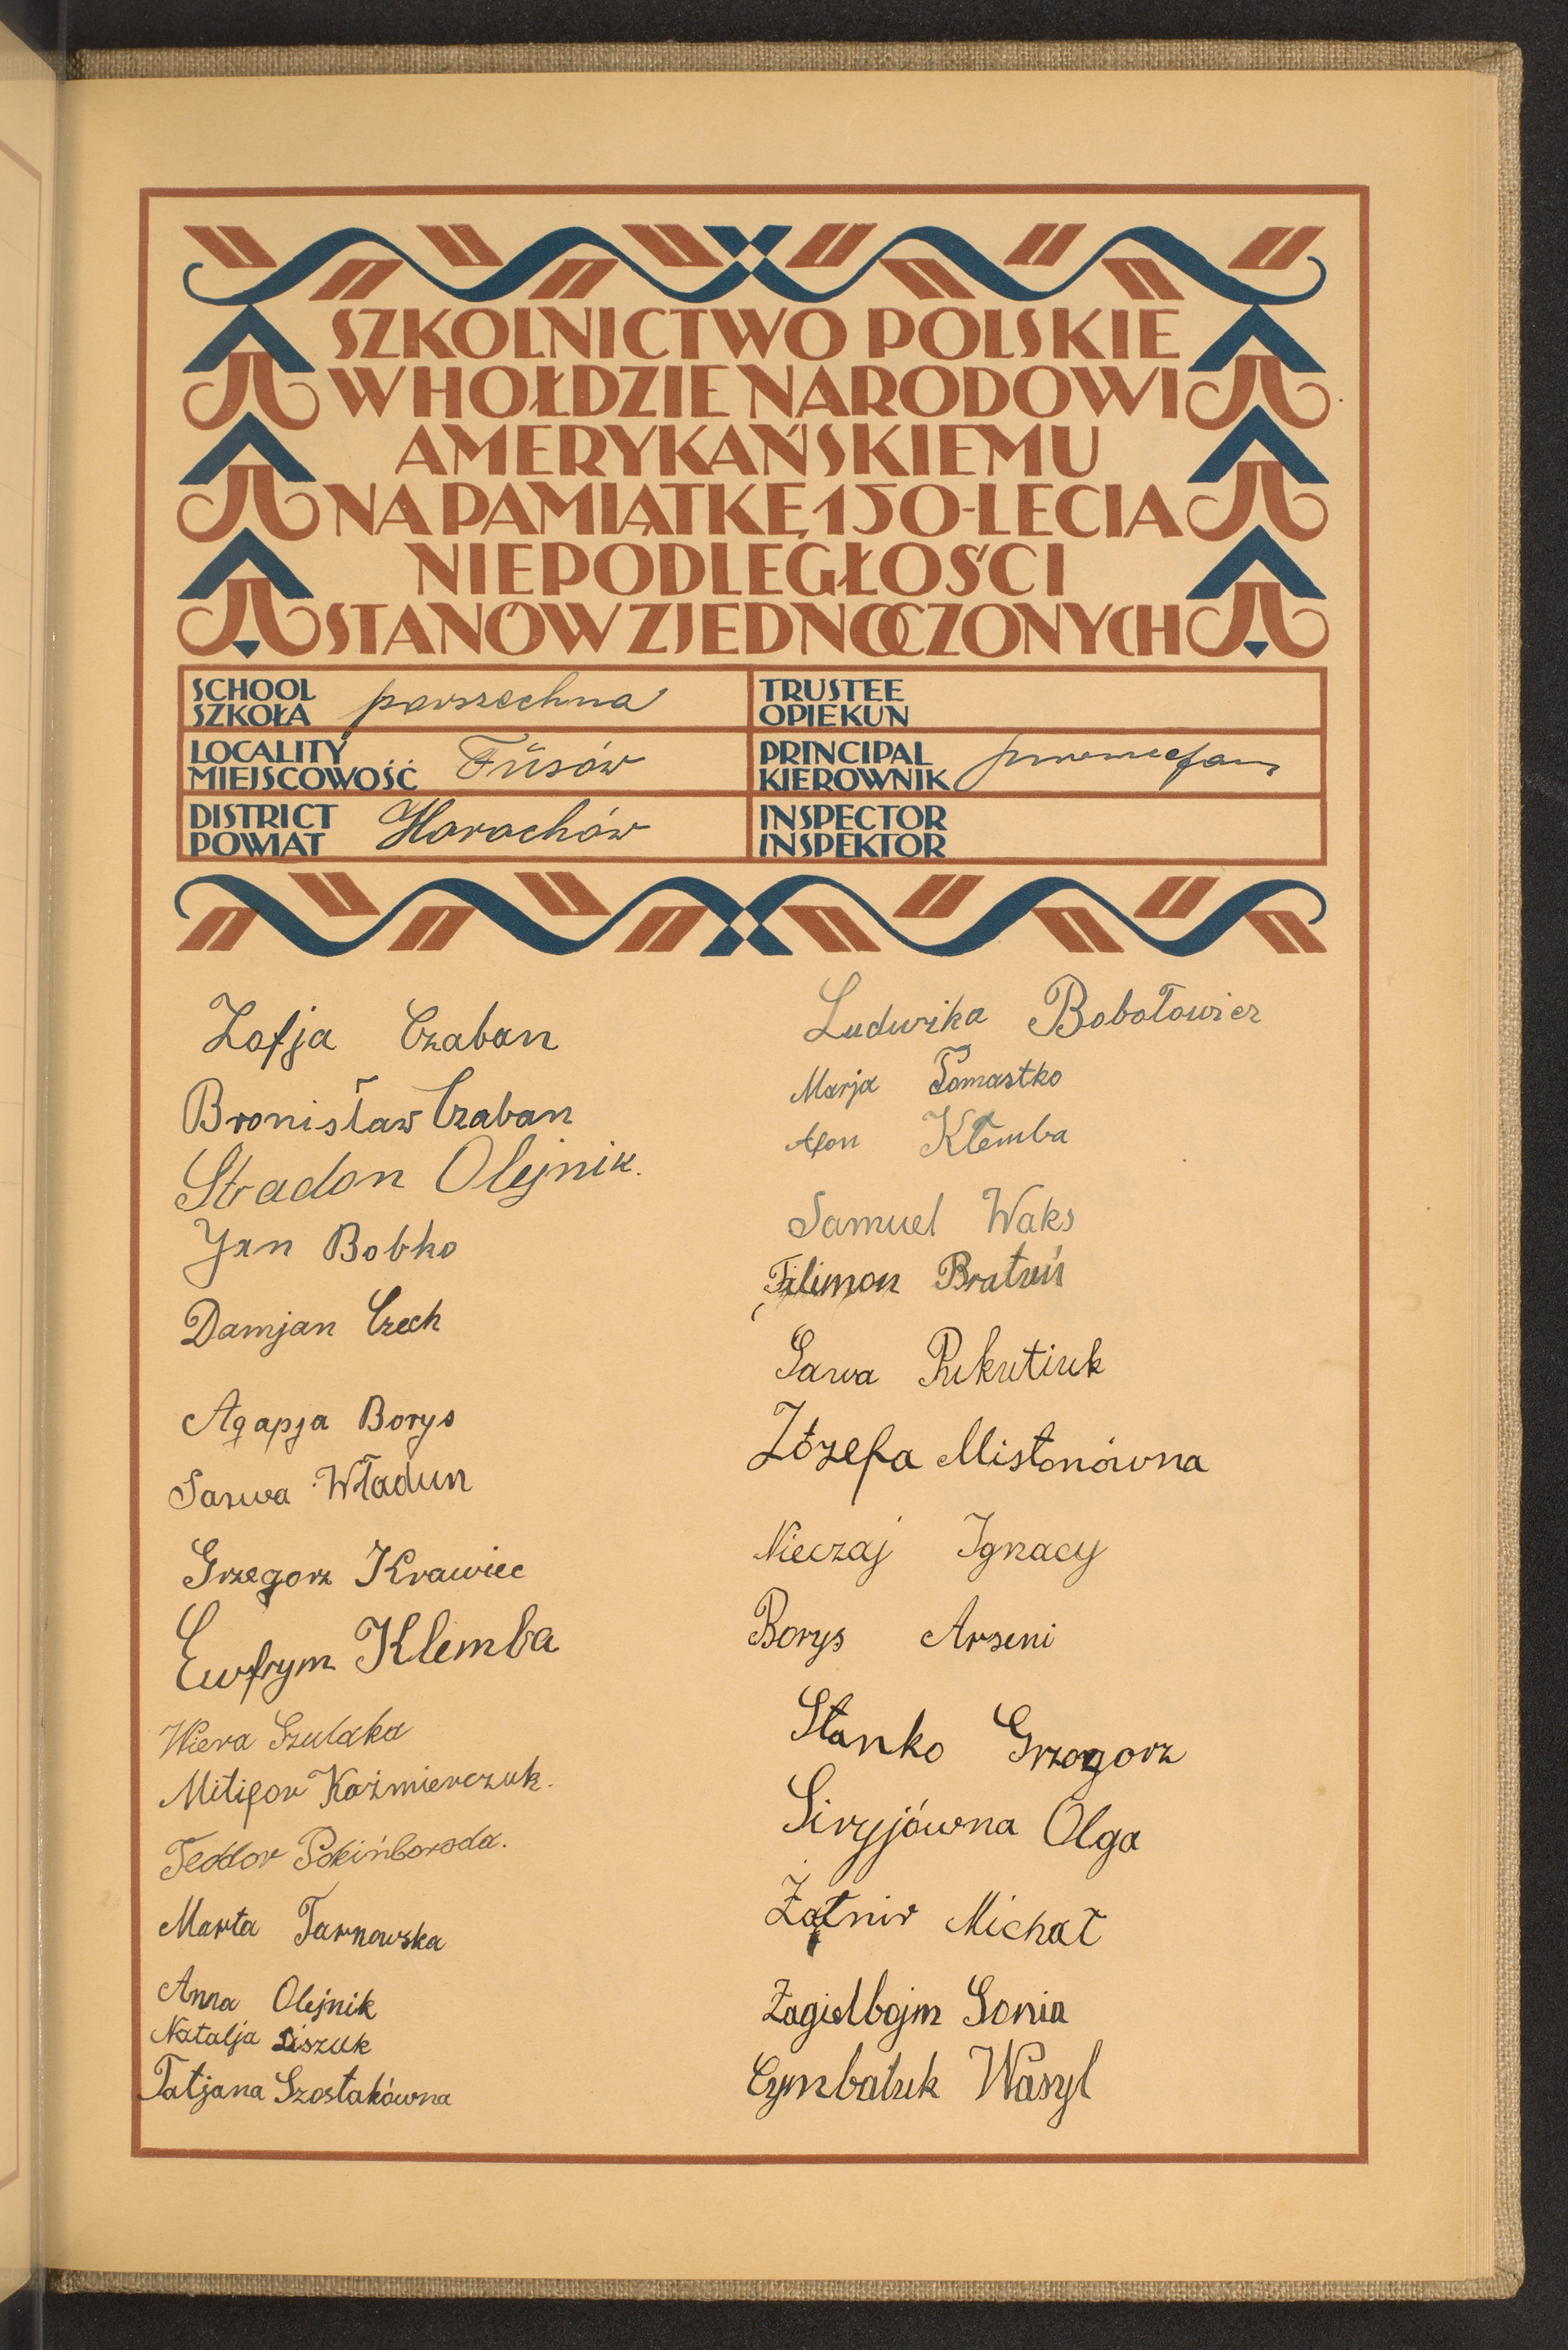 SZKOLNICTWO POLSKIE
W HOŁDZIE NARODOWI
AMERYKAŃSKIEMU
NA PAMIĄTKĘ 150-LECIA
NIEPODLEGŁOŚCI
STANÓW ZJEDNOCZONYCH
SCHOOL
SZKOŁA powszechna
TRUSTEE
OPIEKUN
LOCALITY
MIEJSCOWOŚĆ Fusów
PRINCIPAL
KIEROWNIK
DISTRICT
POWIAT Horochów
INSPECTOR
INSPEKTOR
Zofja Czaban
Bronisław Czaban
Stradon Olejnik.
Jan Bobko
Damjan Czech
Agapja Borys
Sawa Władun
Grzegorz Krawiec
Ewfrym Klemba
Wiera Szulaka
Mitifor Kaźmierczuk.
Teodor
Marta Tarnowska
Anna Olejnik
Natalja Liszuk
Tatjana Szostakówna
Ludwika Bobołowicz
Marja Tomastko
Klemba
Samuel Waks
Filimon Bratuń
Sawa
Józefa Mistonówna
Nieczaj Ignacy
Borys Arseni
Stanko Grzegorz
Siryjówna Olga
Żątnir Michał
Zagielbojm Sonia
Cymbaluk Wasyl